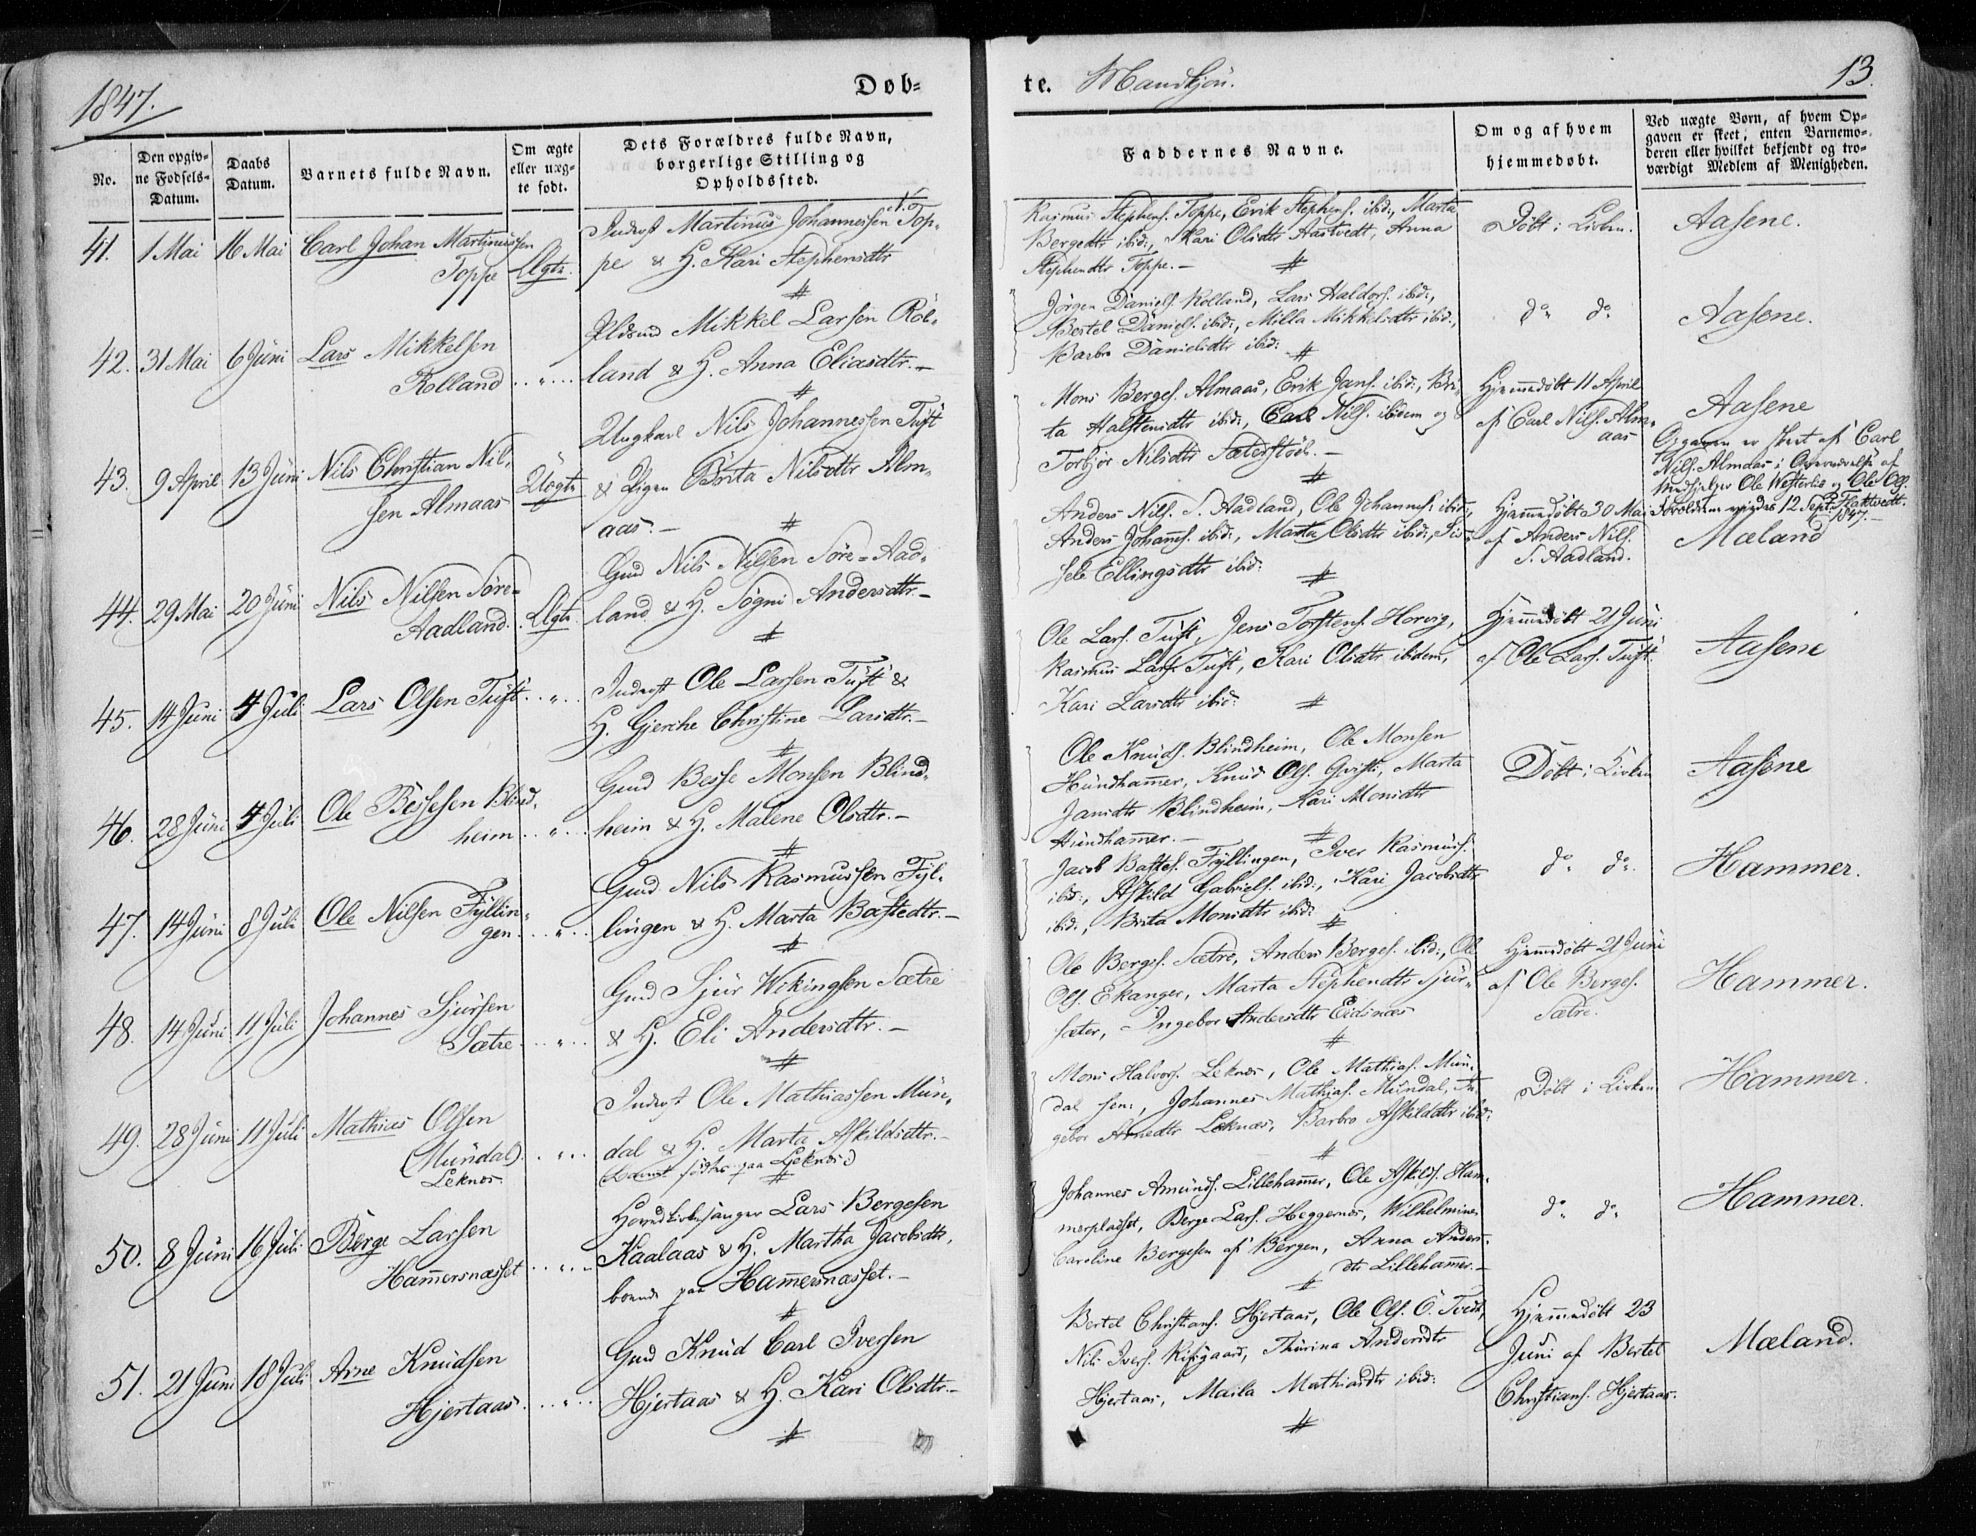 1847.
Døb-
te. Mandkjøn.
13.
No.
Den opgiv-
ne Fødsels-
Datum.
Daabs
Datum.
Barnets fulde Navn.
Om ægte
eller uæg-
te født.
Dets Forældres fulde Navn,
borgerlige Stilling og
Opholdssted.
Faddernes Navne.
Om og af hvem
hjemmedøbt.
Ved uægte Børn, af hvem Op-
gaven er skeet, enten Barnemo-
deren eller hvilket bekjendt og tro-
værdigt Medlem af Menigheden.
41. 1 Mai 16 Mai Carl Johan Martinussen
Toppe Ægte
Inderst Martinus Johannessen Top-
pe & H. Kari Stephensdtr
Rasmus Stephens. Toppe, Erik Stephens. ibid:, Marta
Bergedtr ibid:, Kari Olsdtr Hastvedt, Anna
Stephendtr Toppe.-
Døbt i Kirken.
Aasene.
42. 31 Mai 6 Juni Lars Mikkelsen
Rolland
Mikkel Larsen Rol-
land & H. Anna Eliasdtr.-
Jørgen Daniels. Rolland, Lars Haldors. ibid:,
Bertel Daniels. ibid:, Milla Mikkelsdtr ibid:,
Barbro Danielsdtr ibid:
do do
Aasene.
43. 9 April 13 Juni Nils Christian Nil-
sen Almaas Uægte
Ungkarl Nils Johannessen Tuft
& Pigen Brita Nilsdtr Alm-
aas.-
Mons Berges. Almaas, Erik Jans. ibid:, Bri-
ta Halstensdtr ibid:, Carl Nils. ibidem og
Torbjør Nilsdtr Sæterstøel.-
Hjemmedøbt 11 April
af Carl Nils. Alm-
aas
Aasene
Opgaven er skeet af Carl
Nils. Almaas i Overværelse af
Medhjelper Ole Westerlid og Ole Ols.
12 Sept. 1847.-
44. 29 Mai 20 Juni Nils Nilsen Søre-
Aadland. Ægte
Gmd Nils Nilsen Søre-Aad-
land & H. Sogni Andersdtr-
Anders Nils. S. Aadland, Ole Johannes. ibid:,
Anders Johans. ibid:, Marta Olsdtr ibid:, Sis-
sele Ellingsdtr ibid:
Hjemmedøbt 30 Mai
af Anders Nils.
S. Aadland.
Mæland
45. 14 Juni 4 Juli Lars Olsen Tuft
Inderst Ole Larsen Tuft &
H. Gjerche Christine Larsdtr.-
Ole Lars. Tuft, Jens Torstens. Horvig,
Rasmus Lars. Tuft, Kari Olsdtr ibidem,
Kari Larsdtr ibid:
Hjemmedøbt 21 Juni
af Ole Lars. Tuft.
Aasene
46. 28 Juni 4 Juli Ole Bessesen Blind-
heim
Gmd Besse Monsen Blind-
heim & H. Malene Olsdtr.-
Ole Knuds. Blindheim, Ole Monsen
Hundhamer, Knud Ols. Qvist, Marta
Jansdtr Blindheim, Kari Monsdtr
Hundhamer.-
Døbt i Kirken
Aasene
47. 14 Juni 8 Juli Ole Nilsen Fyllin-
gen
Gmd Nils Rasmussen Fyl-
lingen & H. Marta Bastedtr.-
Jacob Bastes. Fyllingen, Iver Rasmus.
ibid:, Askild Gabriels. ibid:, Kari Jacobsdtr
ibid:, Brita Monsdtr ibid:
do do.
Hammer.
48. 14 Juni 11 Juli Johannes Sjursen
Sætre
Gmd Sjur Wikingsen Sætre
& H. Eli Andersdtr.-
Ole Berges. Sætre, Anders Berges. ibid:, Ole
Ols. Ekanger, Marta Stephendtr Sjur-
sæter, Ingebor Andersdtr Eidsnæs
Hjemmedøbt 21 Juni
af Ole Berges.
Sætre.
Hammer.
49. 28 Juni 11 Juli Mathias Olsen
(Mundal)
Leknes.
Inderst Ole Mathiassen Mun-
dal & H. Marta Askildsdtr.-
(Barnet født paa Leknes)
Mons Halvors. Leknæs, Ole Mathias. Mun-
dal sen:, Johannes Mathias. Mundal, In-
gebor Arnedtr Leknæs, Barbro Askildsdtr ibid:
Døbt i Kirken
Hammer.
50. 8 Juni 16 Juli Berge Larsen
Hamersnæsset
Hovedkirkesanger Lars Bergesen
Kaalaas & H. Martha Jacobsdtr,
boende paa Hamersnæsset.-
Johannes Amunds. Lillehamer, Ole Askilds. Ham-
merpladset, Berge Lars. Heggernes, Wilhelmine
Caroline Bergesen af Bergen, Anna Anders-
dtr Lillehamer.-
do do
Hammer.
51. 21 Juni 18 Juli Arne Knudsen
Hjertaas
Gmd Knud Carl Iversen
Hjertaas & H. Kari Olsdtr.-
Bertel Christians. Hjertaas, Ole Ols. Ø. Tvedt,
Nils Ivers. Risøgaard, Thurina Andersdtr
Hjertaas, Maila Mathiasdtr ibid:
Hjemmedøbt 23
Juni af Bertel
Christians. Hjertaas.
Mæland.